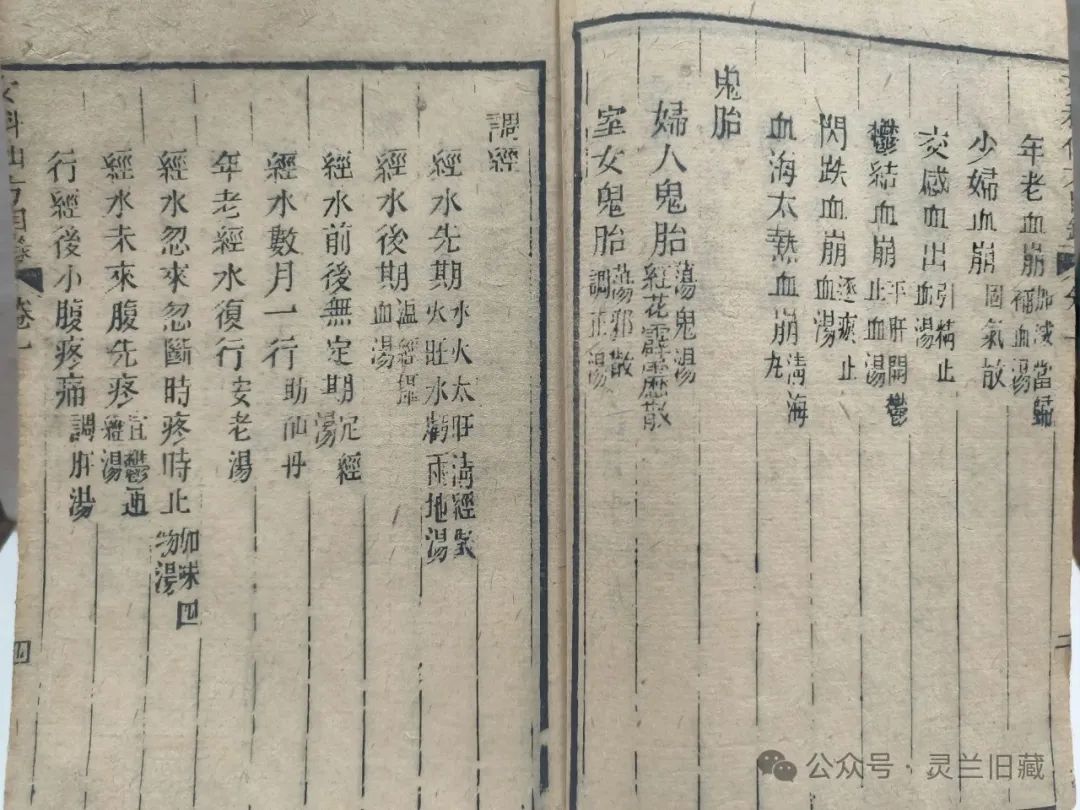 年老血崩 加減當歸補血湯
少婦血崩 固氣散
交感血出 引精止血湯
鬱結血崩 平肝開鬱止血湯
閃跌血崩 逐瘀止血湯
血海太熱血崩 清海丸
鬼胎
婦人鬼胎 蕩鬼湯 紅花霹靂散
室女鬼胎 蕩邪散 調正湯
調經
經水先期 水火太旺清經散 火旺水虧兩地湯
經水後期 温經攝血湯
經水前後無定期 定經湯
經水數月一行 助仙丹
年老經水復行 安老湯
經水忽來忽斷時疼時止 加味四物湯
經水未來腹先疼 宣鬱通經湯
行經後小腹疼痛 調肝湯
女科仙方目錄 卷一 四
公众号·灵兰旧藏